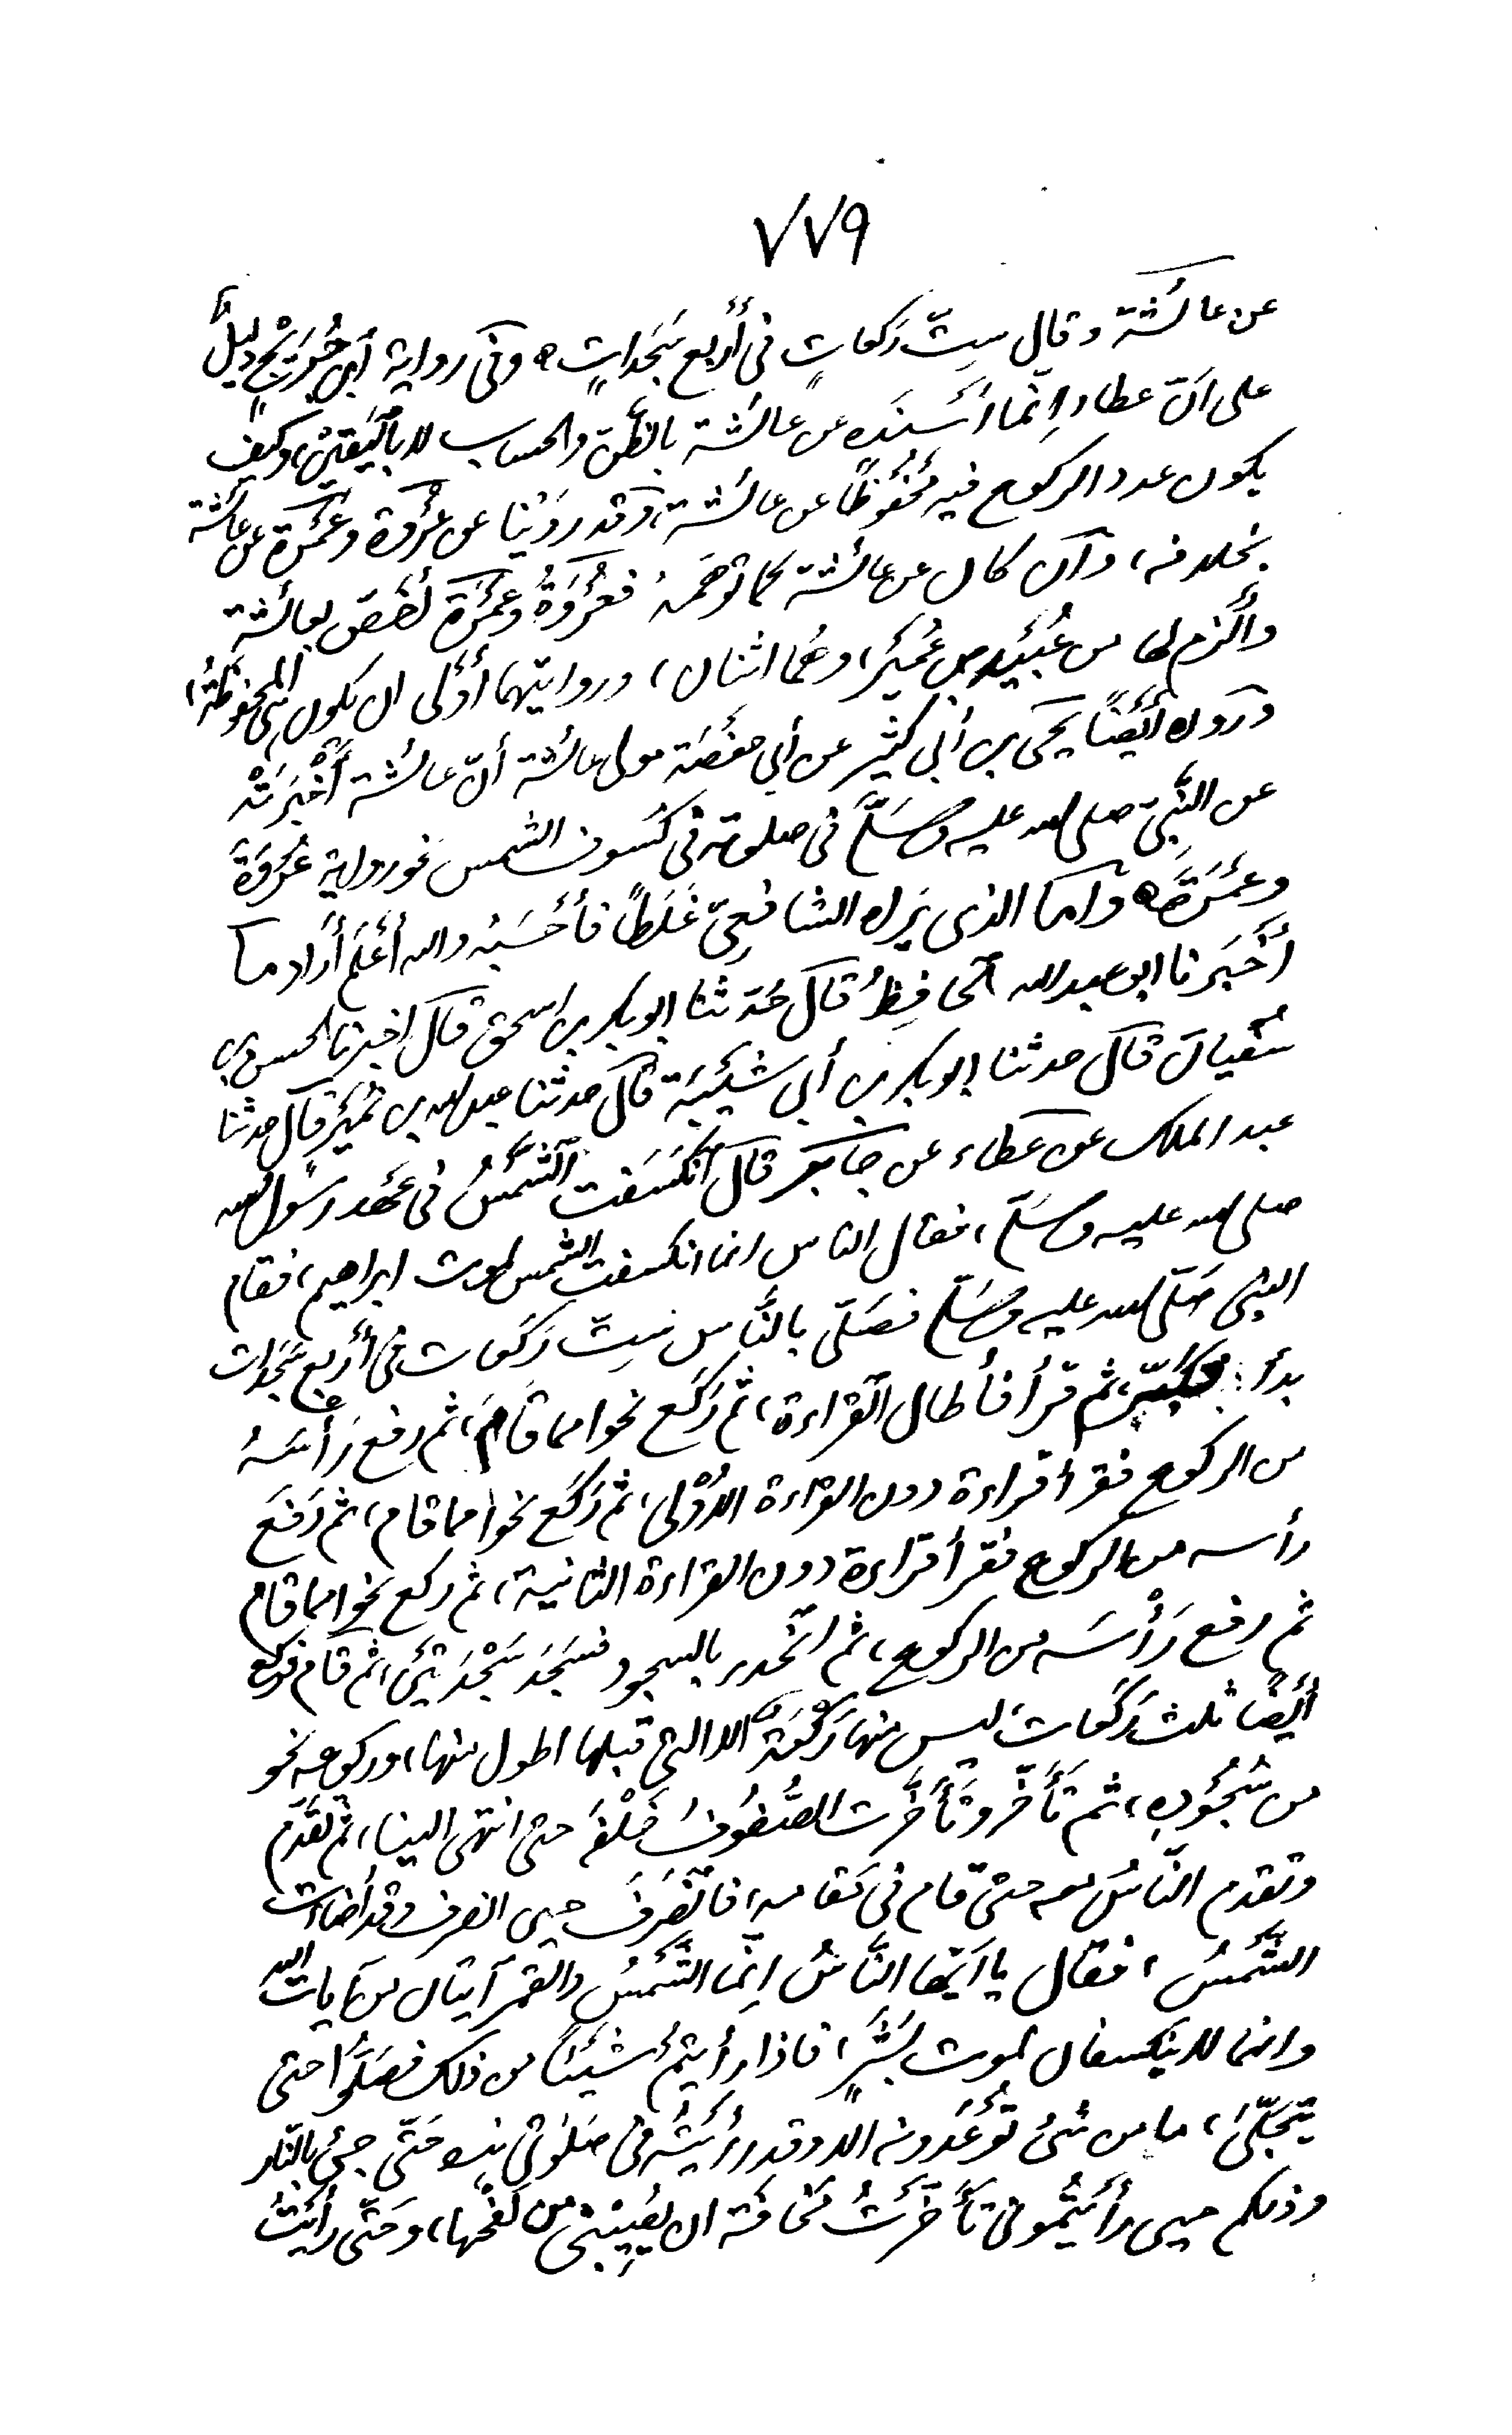 ٧٧٩
عن عائشة وقال سِتّ رَكعاتٍ في أَربع سَجَداتٍ ٥ وفي رواية ابن جُرَيْج دليلٌ
على أنّ عطاء إنّما أَسنَدَه عن عائشة بالظّنّ والحساب لا باليَقين، وكيف
يكون عدد الركوع فيه مَحْفُوظًا عن عائشة، وقد رَوَيْنا عن عُرْوَة وعَمْرَة عن عائشة
بخلافه، وان كان عن عائشة كما توهمَهُ فعُرْوَةُ وعَمْرَة أَخَصّ بعائشة
وأَلْزم لها من عُبَيْد بن عُمَيْر، وهُما اثنان، وروايتهما أَوْلى ان يكون هي المحفوظةُ،
ورواه أَيْضًا يحيى بن أبي كثير عن أبي حفصَة مولى عائشة أنّ عائشة أَخْبَرَتْه
عن النّبيّ صلى الله عليه وسَلَّم في صلوته في كُسوف الشمس نحو رواية عُرْوَةَ
وعَمْرَةَ ٥ وأما الذى يَراه الشافعيّ غَلَطًا فأَحْسَبُه والله أَعْلَم أَراد ما
أَخْبَرنا ابو عبد الله الحافِظُ قال حَدّثنا ابو بكر بن اسحق قال اخبرنا الحسن بن
سُفْيان قال حدثنا ابو بكر بن أبي شَيْبَة قال حدثنا عبد الله بن نُمَيْر قال حدثنا
عبد الملك عن عطاء عن جابر قال انْكَسَفت الشَّمْسُ في عَهْد رسول الله
صلى الله عليه وسَلّم، فقال الناس انما انكسفت الشمس لموت ابراهيم، فقام
النبيّ صَلّى الله عليه وسَلّم فصَلّى بالنَّاس سِتّ رَكَعات في أَرْبع سَجَدات
بدأ فكَبّر، ثم قرأ فأطال القراءة، ثم رَكَع نحوا مما قامَ، ثم رفع رَأْسَهُ
من الركوع فقرأ قراءة دون القراءة الأُوْلى، ثم رَكَع نحوا مما قام، ثم رَفَعَ
رأسه من الركوع فقرأ قراءة دون القراءة الثانية، ثم ركع نحوا مما قام
ثم رفع رَأْسَه من الركوع، ثم انْحَدر بالسجود فسَجَد سَجْدَتَيْن، ثم قام فركع
أَيْضًا ثلث رَكَعات ليس منها رَكْعَةٌ الا التي قبلها اطول منها، وركوعه نحو
من سُجُودِهِ، ثم تَأَخَّر وتَأَخَّرت الصُّفوُفُ خَلْفَه حتى انتهى الينا، ثم تَقَدّم
وتقدم النّاسُ معه حتى قام في مَقامه، فانْصَرَفَ حين انصرف وقد أضاءت
الشَّمْسُ، فقال يا ايّها النَّاسُ إنّما الشَّمْسُ والقمر آيتان من آيات الله
وانهما لا ينكسفان لموت بَشَرٍ، فاذا رأيتم شَيْئًا من ذلك فصَلُّوا حتى
يَنْجَلّى، ما من شئ تُوْعَدونه الا وقد رَأَيْتُه في صَلوٰتي هذه حَتّى جئ بالنّار
وذلكم حين رأَيْتُموني تَأَخَّرْتُ مَخافَة ان يُصِيْبَني من لَفْحها، وحَتّى رأَيْتُ